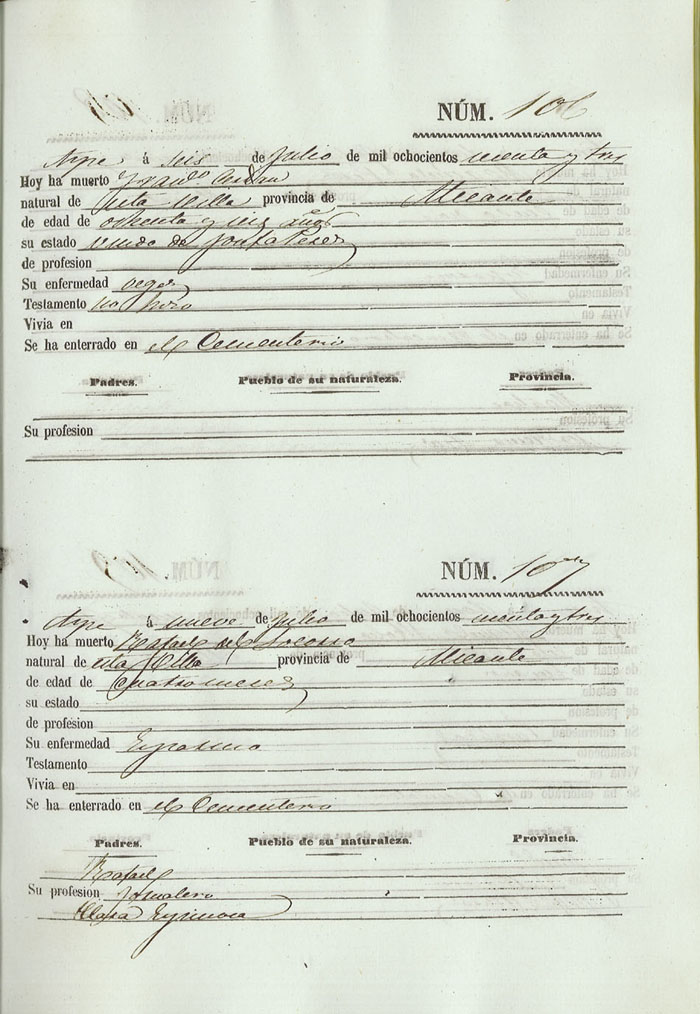 NÚM. 106
Aspe á seis de Julio de mil ochocientos setenta y tres
Hoy ha muerto Franco.
natural de esta Villa provincia de Alicante
de edad de ochenta y seis años
su estado viudo de Josefa Perez
de profesion
Su enfermedad vegez
Testamento no hizo
Vivia en
Se ha enterrado en el Cementerio
Padres. Pueblo de su naturaleza. Provincia.
Su profesion
NÚM. 107
Aspe á nueve de Julio de mil ochocientos setenta y tres
Hoy ha muerto Rafael del
natural de esta Villa provincia de Alicante
de edad de Cuatro meses
su estado
de profesion
Su enfermedad
Testamento
Vivia en
Se ha enterrado en el Cementerio
Padres. Pueblo de su naturaleza. Provincia.
Rafael
Su profesion Jornalero
Espinosa